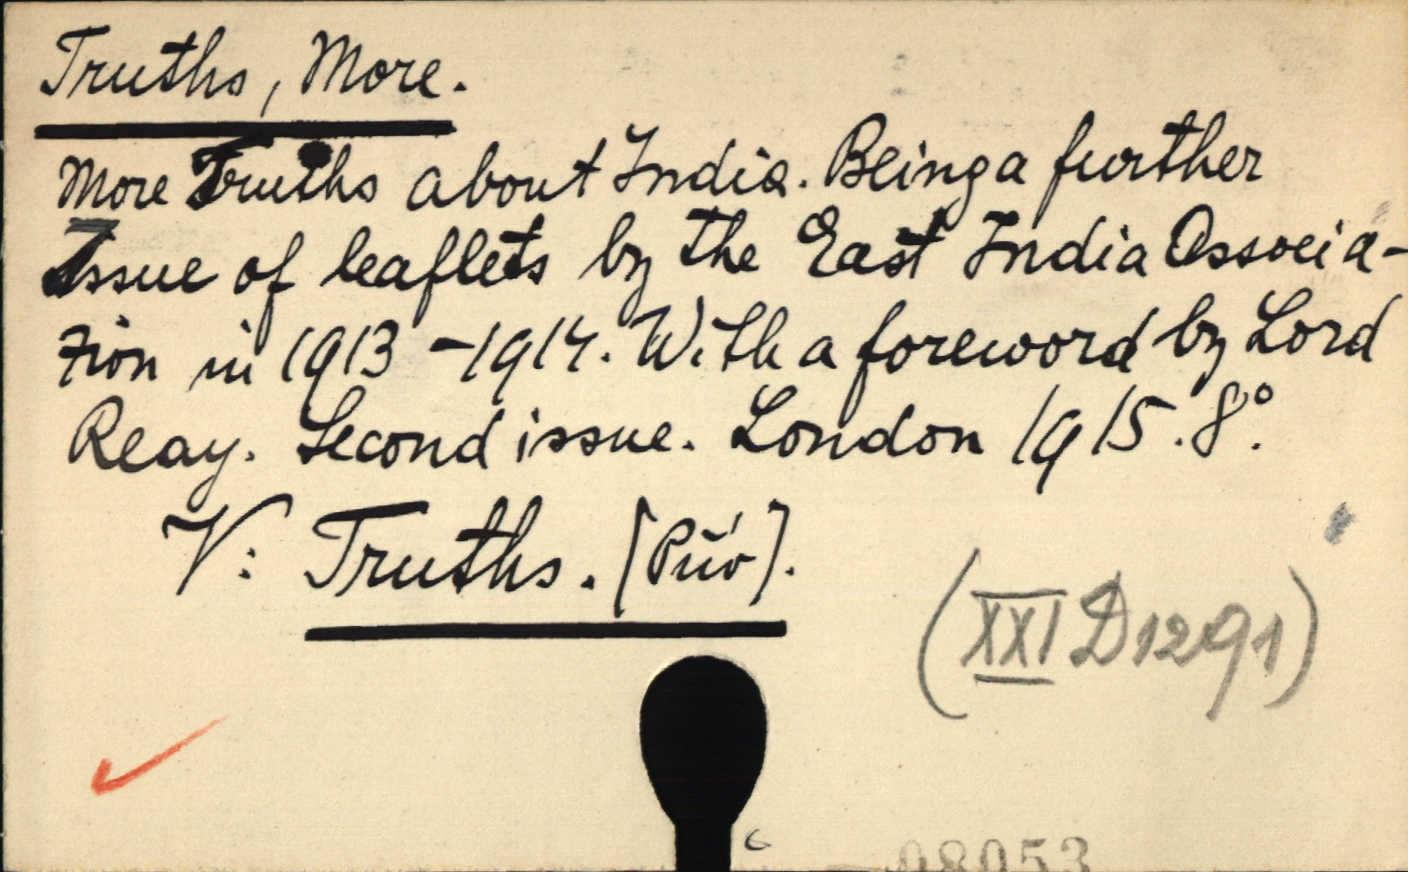 Truths, More.
More Truths about India. Being a further
Issue of leaflets by the East India Associa-
tion in 1913-1914. With a foreword by Lord
Reay. Second issue. London 1915. 8°.
V: Truths. [Priv].
(XXI D 1291)
08053